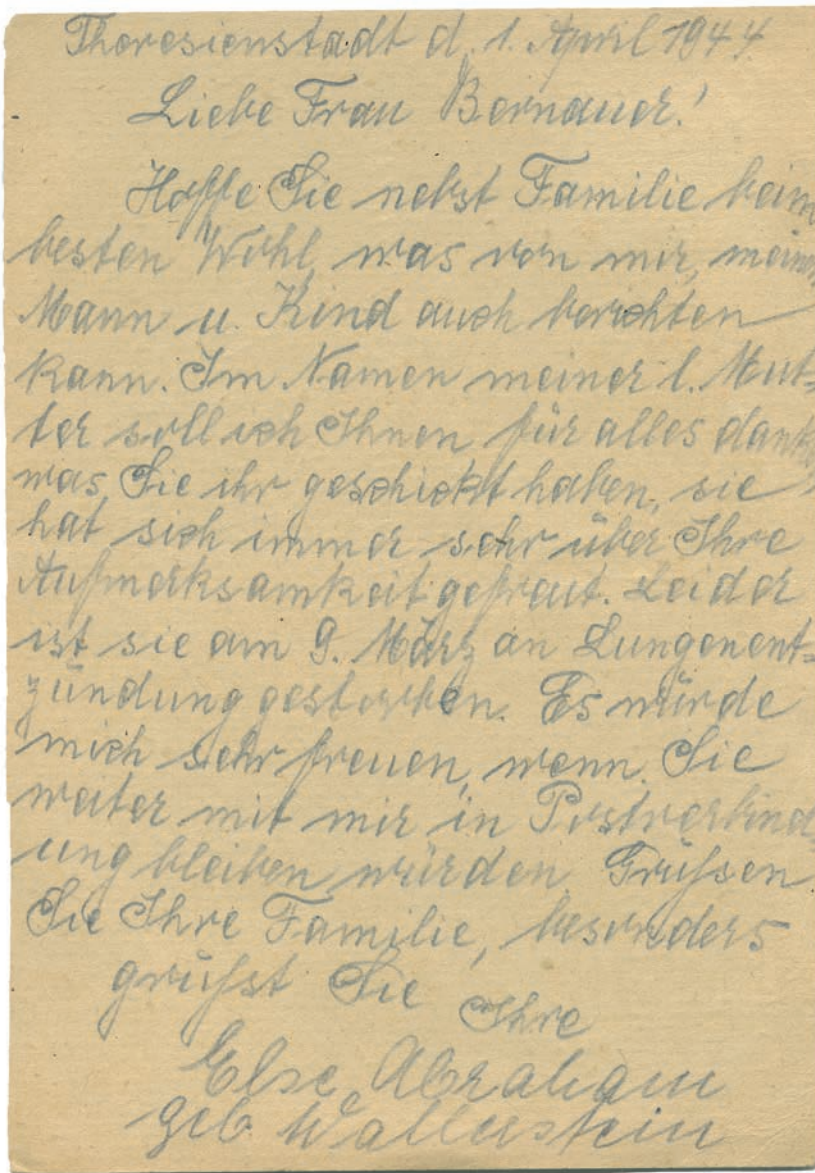 Theresienstadt d. 1. April 1944
Liebe Frau Bernauer!
Hoffe Sie nebst Familie beim
besten Wohl, was von mir, meinem
Mann u. Kind auch berichten
kann. Im Namen meiner l. Mut=
ter soll ich Ihnen für alles danken
was Sie ihr geschickt haben, sie
hat sich immer sehr über Ihre
Aufmerksamkeit gefreut. Leider
ist sie am 9. März an Lungenent=
zündung gestorben. Es würde
mich sehr freuen, wenn Sie
weiter mit mir in Postverbind
ung bleiben würden. Grüßen
Sie Ihre Familie, besonders
grüßt Sie Ihre
Else Abraham
geb. Wallerstein